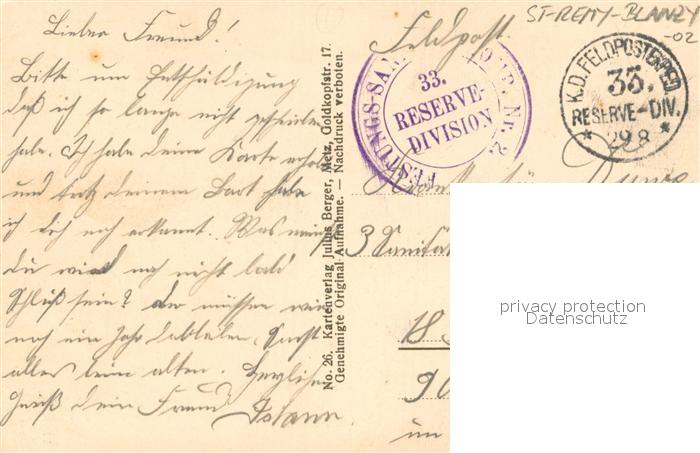 ST-REMY-BLANZY
-02
Lieber Freund!
Bitte um Entschuldigung
daß ich so lange nicht geschrieben
habe. Ich habe deine Karte erhalten
und trotz deinem Bart habe
ich dich noch erkannt. Was meinst
du wird noch nicht bald
Schluß sein? der müssen wir
noch ein Jahr
alles beim alten. Herzlichen
Gruß dein Freund
No. 26. Kartenverlag Julius Berger, Metz, Goldkopfstr. 17.
Genehmigte Original-Aufnahme. — Nachdruck verboten.
Feldpost.
FESTUNGS-SAN. KOMP. Nr. 2
33.
RESERVE-
DIVISION
K.D. FELDPOSTEXPED
33.
RESERVE-DIV.
* 29.8 *
3 Sanitä
18
90
im
privacy protection
Datenschutz